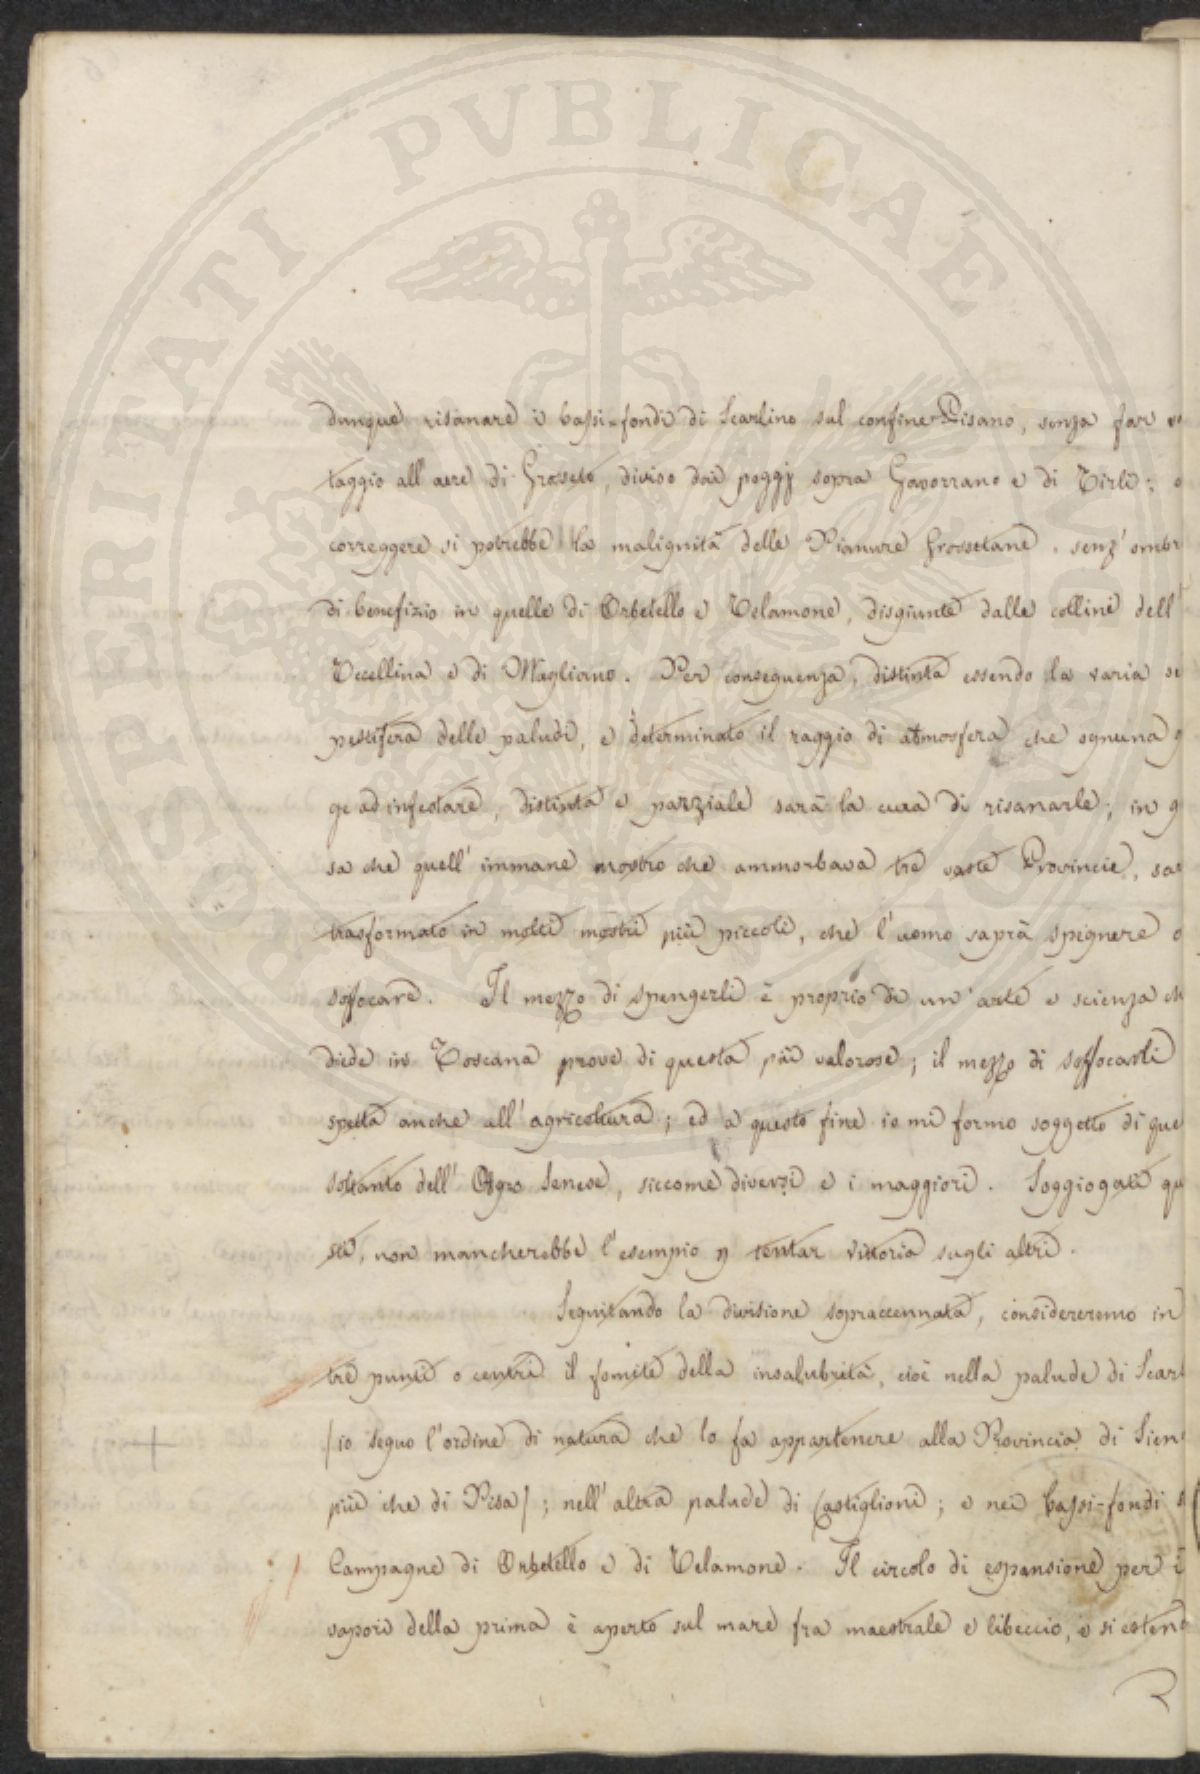 PROSPERITATI PUBLICAE
dunque risanare i bassi-fondi di Scarlino sul confine Pisano, senza far
taggio all'aere di Grosseto, diviso dai poggj sopra Gavorrano e di Tirli;
correggere si potrebbe la malignità delle Pianure Grossetane, senz'ombr
di benefizio in quelle di Orbetello e Telamone, disgiunte dalle colline dell'
Uccellina e di Magliano. Per conseguenza, distinta essendo la varia se
pestifera delle paludi, e determinato il raggio di atmosfera che ognuna g
ge ad infestare, distinta e parziale sarà la cura di risanarle; in g
sa che quell'immane mostro che ammorbava tre vaste Provincie, sar
trasformato in molti mostri più piccoli, che l'uomo saprà spignere o
soffocare. Il mezzo di spengerli è proprio di un'arte e scienza ch
diede in Toscana prove di questa più valorose; il mezzo di soffocarli
spetta anche all'agricoltura; ed a questo fine io mi formo soggetto di que
soltanto dell'Agro Senese, siccome diversi e i maggiori. Soggiogati qu
sti, non mancherebbe l'esempio p tentar vittoria sugli altri.
Seguitando la divisione sopraccennata, considereremo in
tre punti o centri il fomite della insalubrità, cioè nella palude di Scarl
/io seguo l'ordine di natura che lo fa appartenere alla Provincia di Sien
più che di Pisa/; nell'altra palude di Castiglioni; e nei bassi-fondi
Campagne di Orbetello e di Telamone. Il circolo di espansione per i
vapori della prima è aperto sul mare fra maestrale e libeccio, e si estend